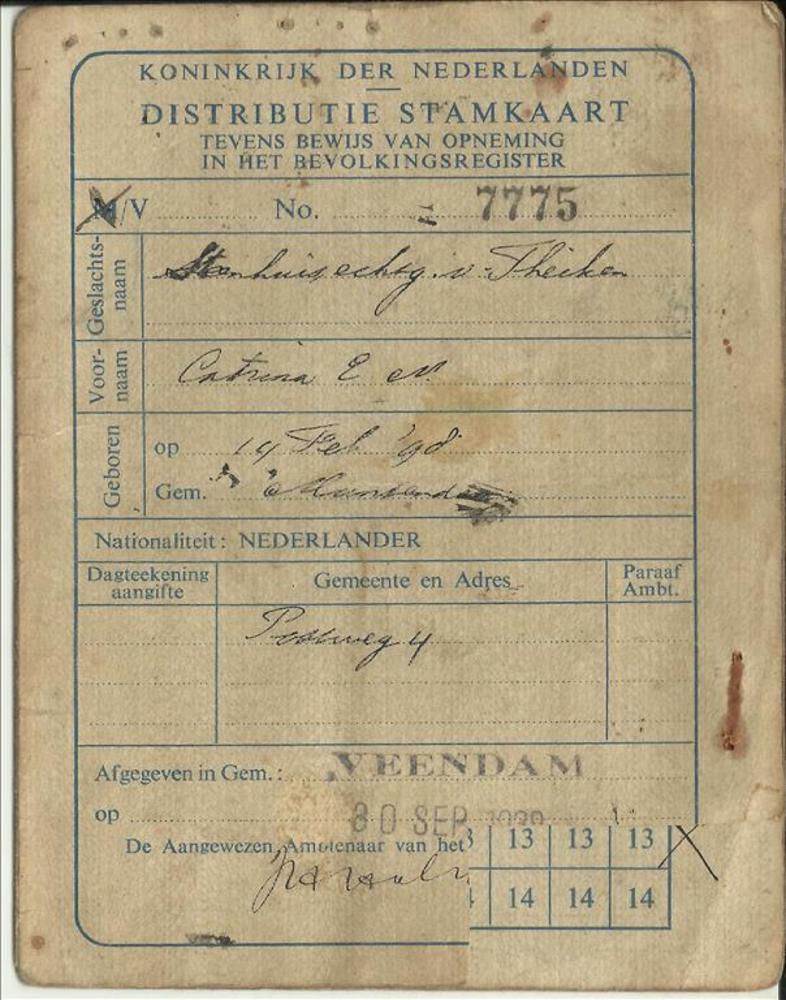 KONINKRIJK DER NEDERLANDEN
DISTRIBUTIE STAMKAART
TEVENS BEWIJS VAN OPNEMING
IN HET BEVOLKINGSREGISTER
M/V No. 7775
Geslachts-
naam
Stenhuis echtg. v. Theiken
Voor-
naam
Catrina E M
Geboren
op 14 Feb '98
Gem.
Nationaliteit: NEDERLANDER
Dagteekening
aangifte
Gemeente en Adres
Paraaf
Ambt.
Postweg 4
Afgegeven in Gem.: VEENDAM
op 30 SEP 1939
De Aangewezen Ambtenaar van het
13 13 13
14 14 14